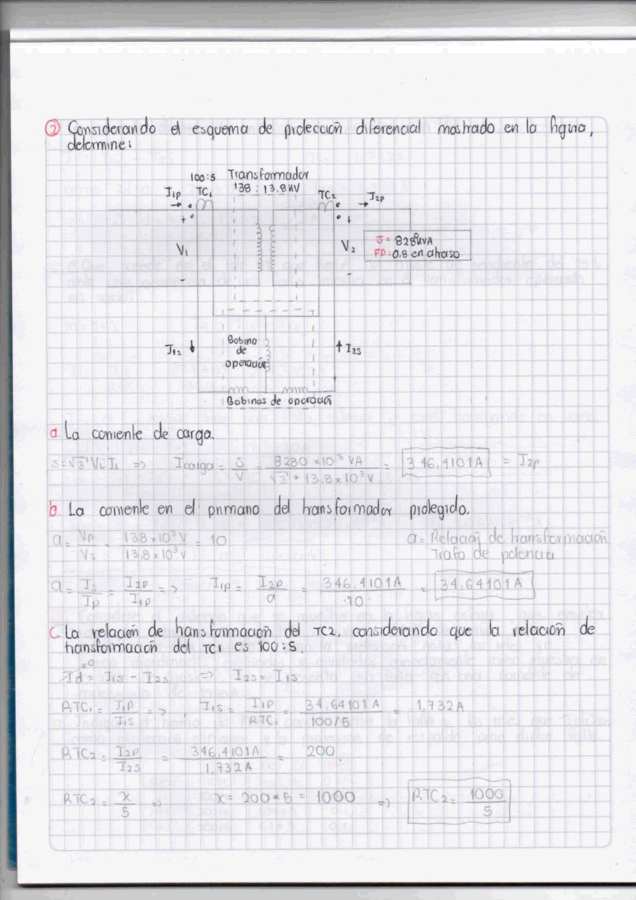 ② Considerando el esquema de protección diferencial mostrado en la figura,
determine:
100:5 Transformador
I1p TC1 138:13.8kV TC2 I2p
+ +
V1 V2
S= 8280kVA
FP=0.8 en atraso
- -
I1s Bobina de operación I2s
Bobinas de operación
a. La corriente de carga.
S=√3 VL IL => Icarga = S/V = 8280×10³ VA / √3 * 13.8×10³ V = 346.4101A = I2p
b. La corriente en el primario del transformador protegido.
a = Vp/Vs = 138×10³ V / 13.8×10³ V = 10 a= Relación de transformación
Trafo de potencia
a = Is/Ip = I2p/I1p => I1p = I2p/a = 346.4101A / 10 = 34.64101A
c. La relación de transformación del TC2, considerando que la relación de
transformación del TC1 es 100:5.
Id = I1s - I2s => I2s = I1s
RTC1 = I1p/I1s => I1s = I1p/RTC1 = 34.64101A / 100/5 = 1,732A
RTC2 = I2p/I2s = 346.4101A / 1,732A = 200
RTC2 = x/5 => x = 200*5 = 1000 => RTC2 = 1000/5